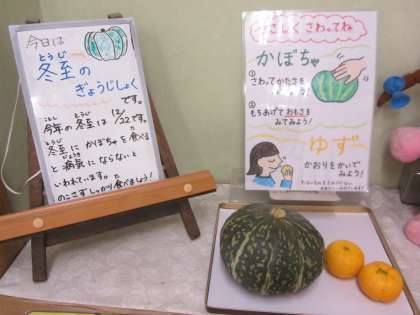 今日は
とうじ
冬至の
ぎょうじしょく
です。
ことし とうじ
今年の冬至は 12/22です。
とうじ た
冬至に かぼちゃを 食べる
びょうき
と 病気に ならないと
いわれています。
た
のこさず しっかり 食べましょう!
やさしく さわってね
かぼちゃ
①さわってかたさを
②もちあげておもさを
みてみよう!
ゆず
かおりをかいで
みよう!